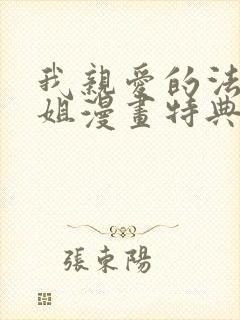 我親愛的法
姐漫畫特典
張東陽